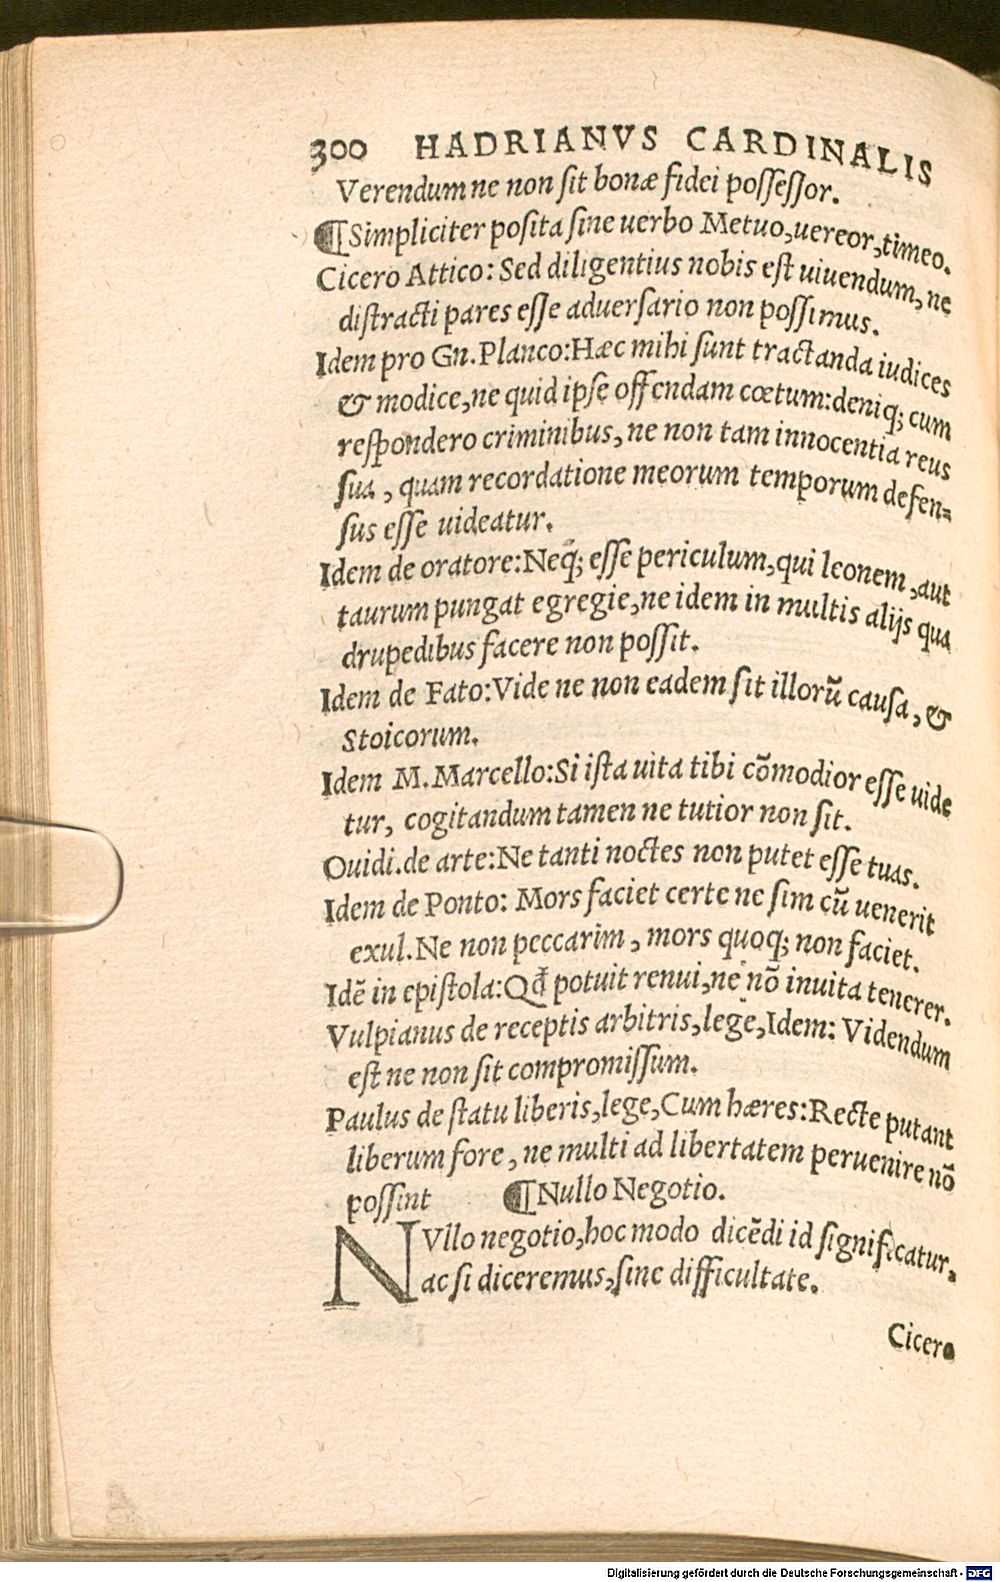 300 HADRIANVS CARDINALIS
Verendum ne non ſit bonæ fidei poſſeſſor.
¶Simpliciter poſita ſine uerbo Metuo,uereor,timeo.
Cicero Attico: Sed diligentius nobis eſt uiuendum, ne
diſtracti pares eſſe aduerſario non poſſimus.
Idem pro Gn.Planco:Hæc mihi ſunt tractanda iudices
& modice,ne quid ipſe offendam cœtum:deniq; cum
reſpondero criminibus, ne non tam innocentia reus
ſua , quam recordatione meorum temporum defen=
ſus eſſe uideatur.
Idem de oratore:Neq; eſſe periculum,qui leonem ,aut
taurum pungat egregie,ne idem in multis alijs qua
drupedibus facere non poſſit.
Idem de Fato:Vide ne non eadem ſit illorũ cauſa, &
Stoicorum.
Idem M.Marcello:Si iſta uita tibi cõmodior eſſe uide
tur, cogitandum tamen ne tutior non ſit.
Ouidi.de arte:Ne tanti noctes non putet eſſe tuas.
Idem de Ponto: Mors faciet certe ne ſim cũ uenerit
exul.Ne non peccarim , mors quoq; non faciet.
Idẽ in epiſtola:Qđ potuit renui,ne nõ inuita tenerer.
Vulpianus de receptis arbitris,lege,Idem: Videndum
eſt ne non ſit compromiſſum.
Paulus de ſtatu liberis,lege,Cum hæres:Recte putant
liberum fore , ne multi ad libertatem peruenire nõ
poſſint ¶Nullo Negotio.
NVllo negotio,hoc modo dicẽdi id ſignificatur,
ac ſi diceremus,ſine difficultate.
Cicero
Digitalisierung gefördert durch die Deutsche Forschungsgemeinschaft - DFG